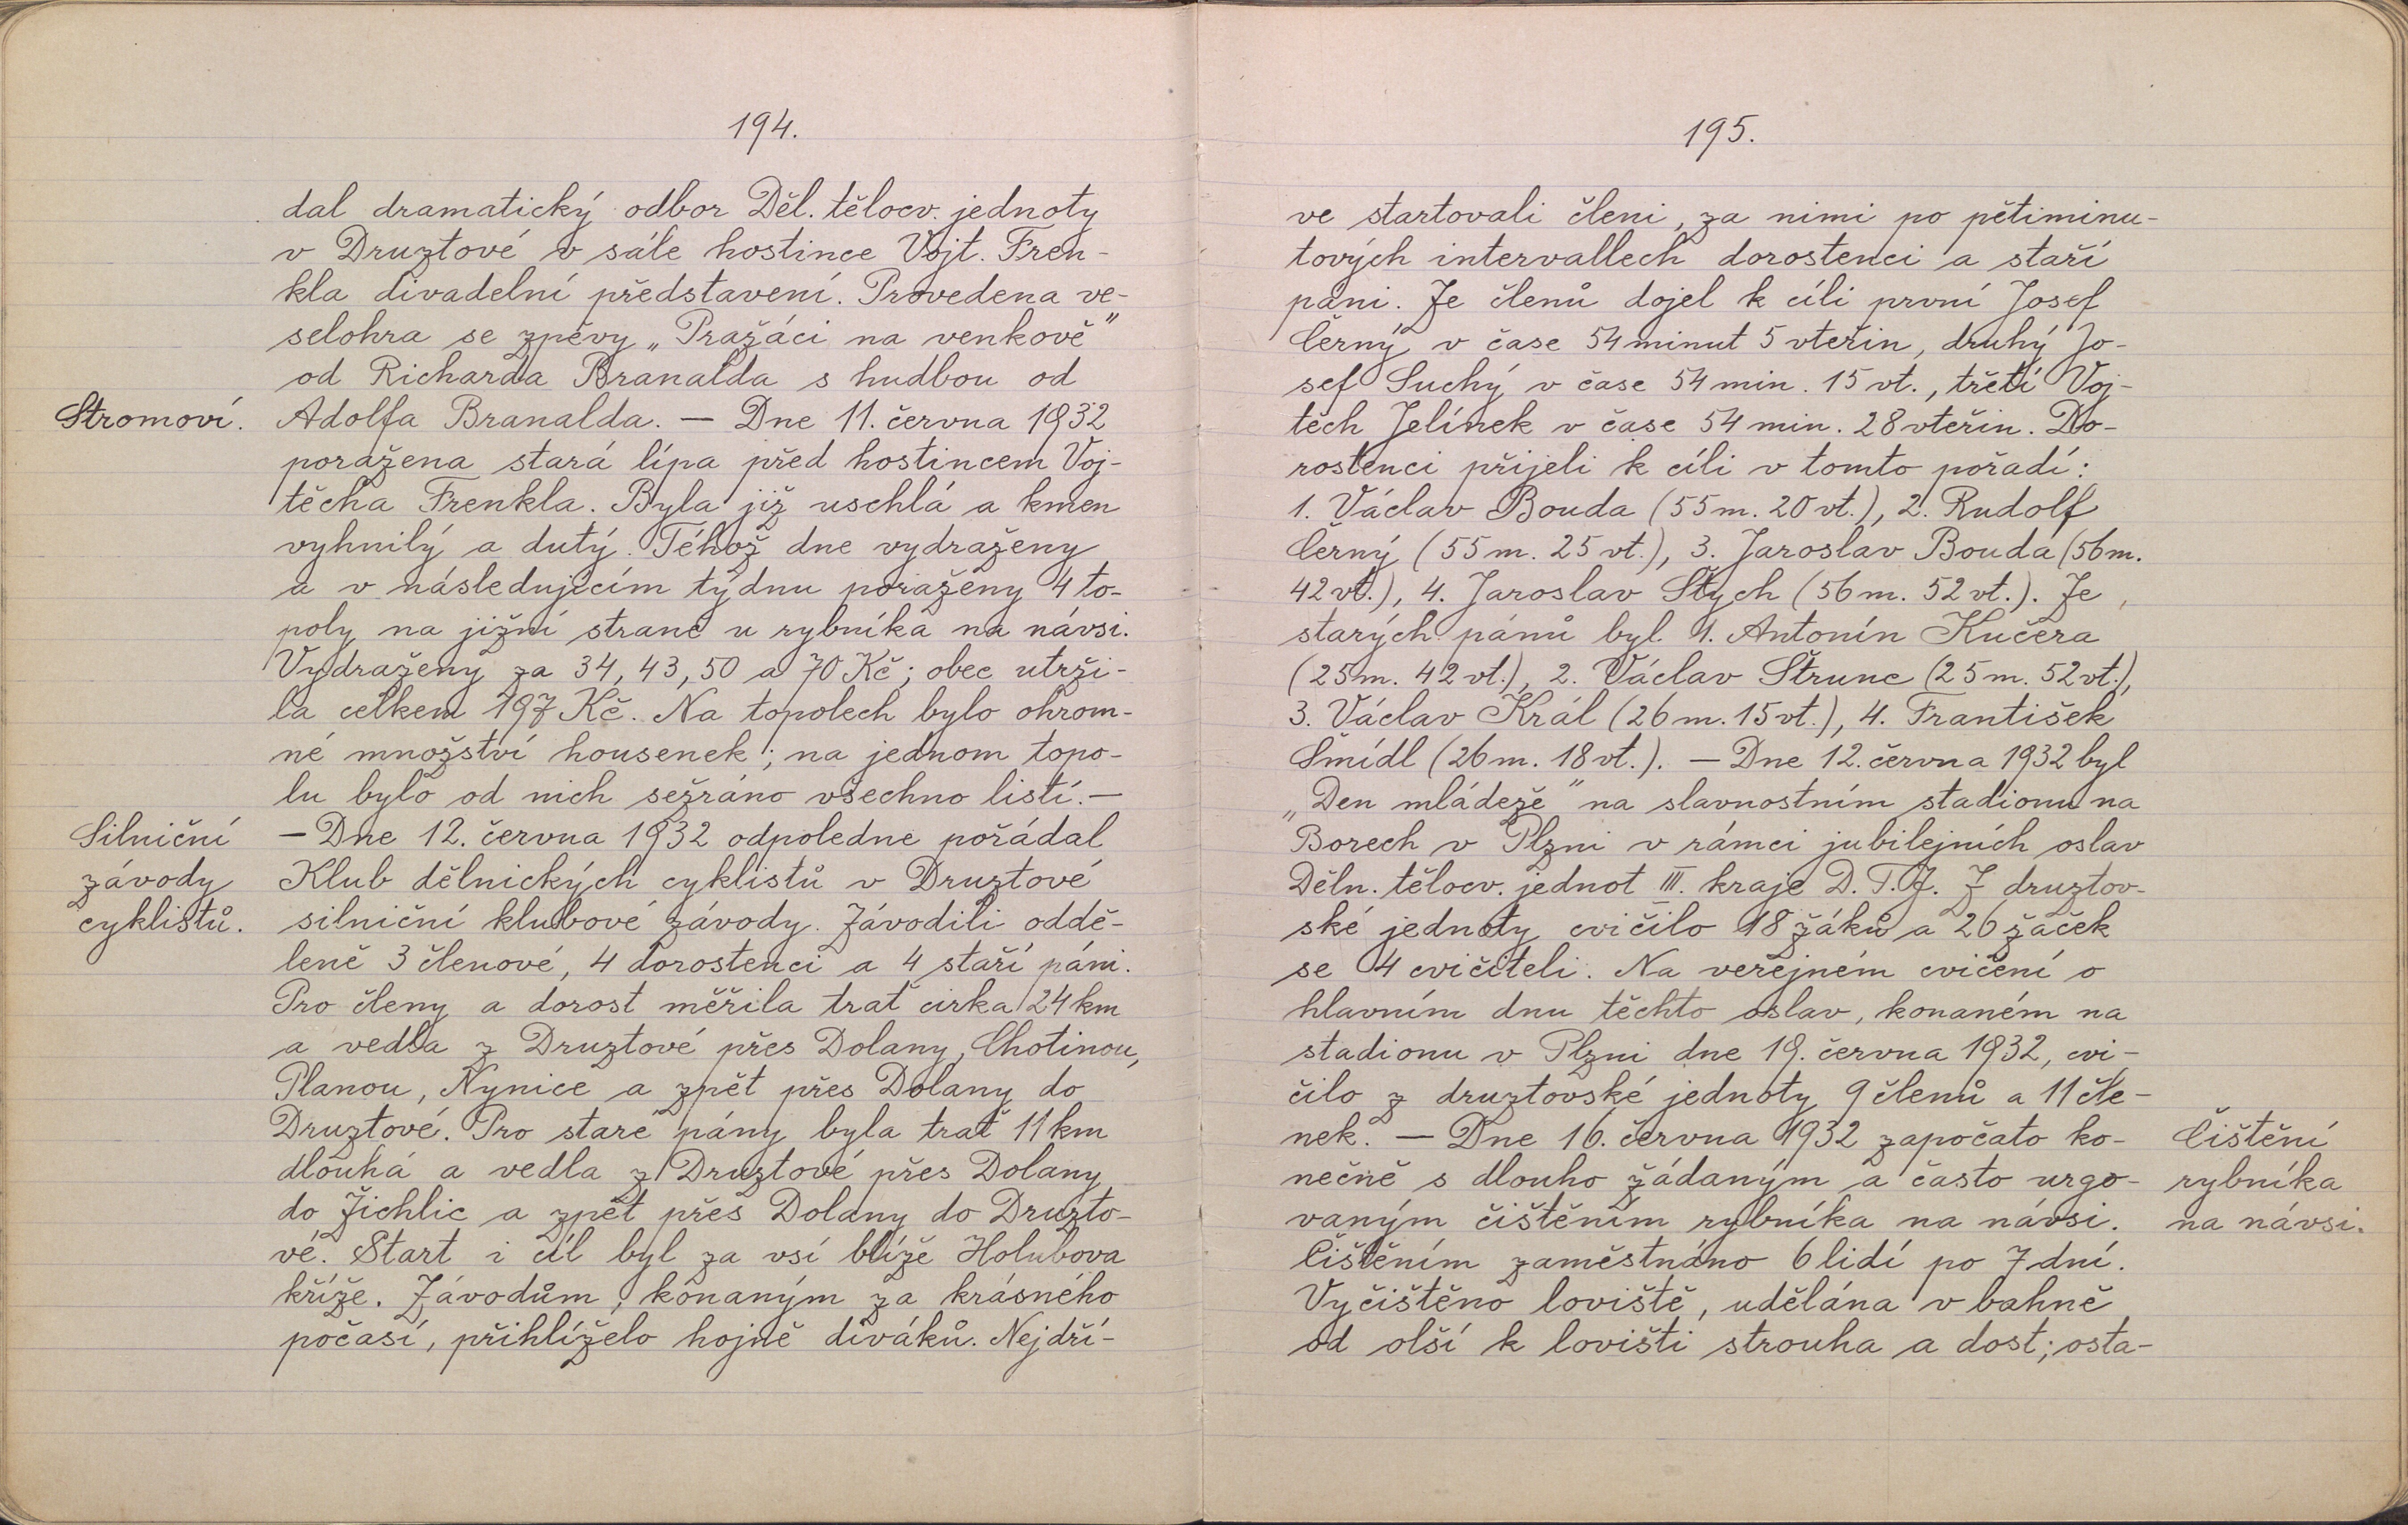 194.
dal dramatický odbor Děl. tělocv. jednoty
v Druztové v sále hostince Vojt. Fren-
kla divadelní představení. Provedena ve-
selohra se zpěvy „Pražáci na venkově"
od Richarda Branalda s hudbou od
Stromoví.
Adolfa Branalda. — Dne 11. června 1932
poražena stará lípa před hostincem Voj-
těcha Frenkla. Byla již uschlá a kmen
vyhnilý a dutý. Téhož dne vydraženy
a v následujícím týdnu poraženy 4 to-
poly na jižní straně u rybníka na návsi.
Vydraženy za 34, 43, 50 a 70 Kč; obec utrži-
la celkem 197 Kč. Na topolech bylo ohrom-
né množství housenek; na jednom topo-
lu bylo od nich sežráno všechno listí. —
Silniční
závody
cyklistů.
— Dne 12. června 1932 odpoledne pořádal
Klub dělnických cyklistů v Druztové
silniční klubové závody. Závodili oddě-
leně 3 členové, 4 dorostenci a 4 staří páni.
Pro členy a dorost měřila trať cirka 24 km
a vedla z Druztové přes Dolany, Chotinou,
Planou, Nynice a zpět přes Dolany do
Druztové. Pro staré pány byla trať 11 km
dlouhá a vedla z Druztové přes Dolany
do Žichlic a zpět přes Dolany do Druzto-
vé. Start i cíl byl za vsí blíže Holubova
kříže. Závodům, konaným za krásného
počasí, přihlíželo hojně diváků. Nejdří-
195.
ve startovali členi, za nimi po pětiminu-
tových intervallech dorostenci a staří
páni. Ze členů dojel k cíli první Josef
Černý v čase 54 minut 5 vteřin, druhý Jo-
sef Suchý v čase 54 min. 15 vt., třetí Voj-
těch Jelínek v čase 54 min. 28 vteřin. Do-
rostenci přijeli k cíli v tomto pořadí:
1. Václav Bouda (55 m. 20 vt.), 2. Rudolf
Černý (55 m. 25 vt.), 3. Jaroslav Bouda (56 m.
42 vt.), 4. Jaroslav Štych (56 m. 52 vt.). Ze
starých pánů byl 1. Antonín Kučera
(25 m. 42 vt.), 2. Václav Štrunc (25 m. 52 vt.),
3. Václav Král (26 m. 15 vt.), 4. František
Šmídl (26 m. 18 vt.). — Dne 12. června 1932 byl
„Den mládeže" na slavnostním stadionu na
Borech v Plzni v rámci jubilejních oslav
Děln. tělocv. jednot III. kraje D. T. J. Z druztov-
ské jednoty cvičilo 18 žáků a 26 žaček
se 4 cvičiteli. Na veřejném cvičení o
hlavním dnu těchto oslav, konaném na
stadionu v Plzni dne 19. června 1932, cvi-
čilo z druztovské jednoty 9 členů a 11 čle-
nek. — Dne 16. června 1932 započato ko-
nečně s dlouho žádaným a často urgo-
vaným čištěním rybníka na návsi.
Čištění
rybníka
na návsi.
Čištěním zaměstnáno 6 lidí po 7 dní.
Vyčištěno loviště, udělána v bahně
od olší k lovišti strouha a dost; osta-